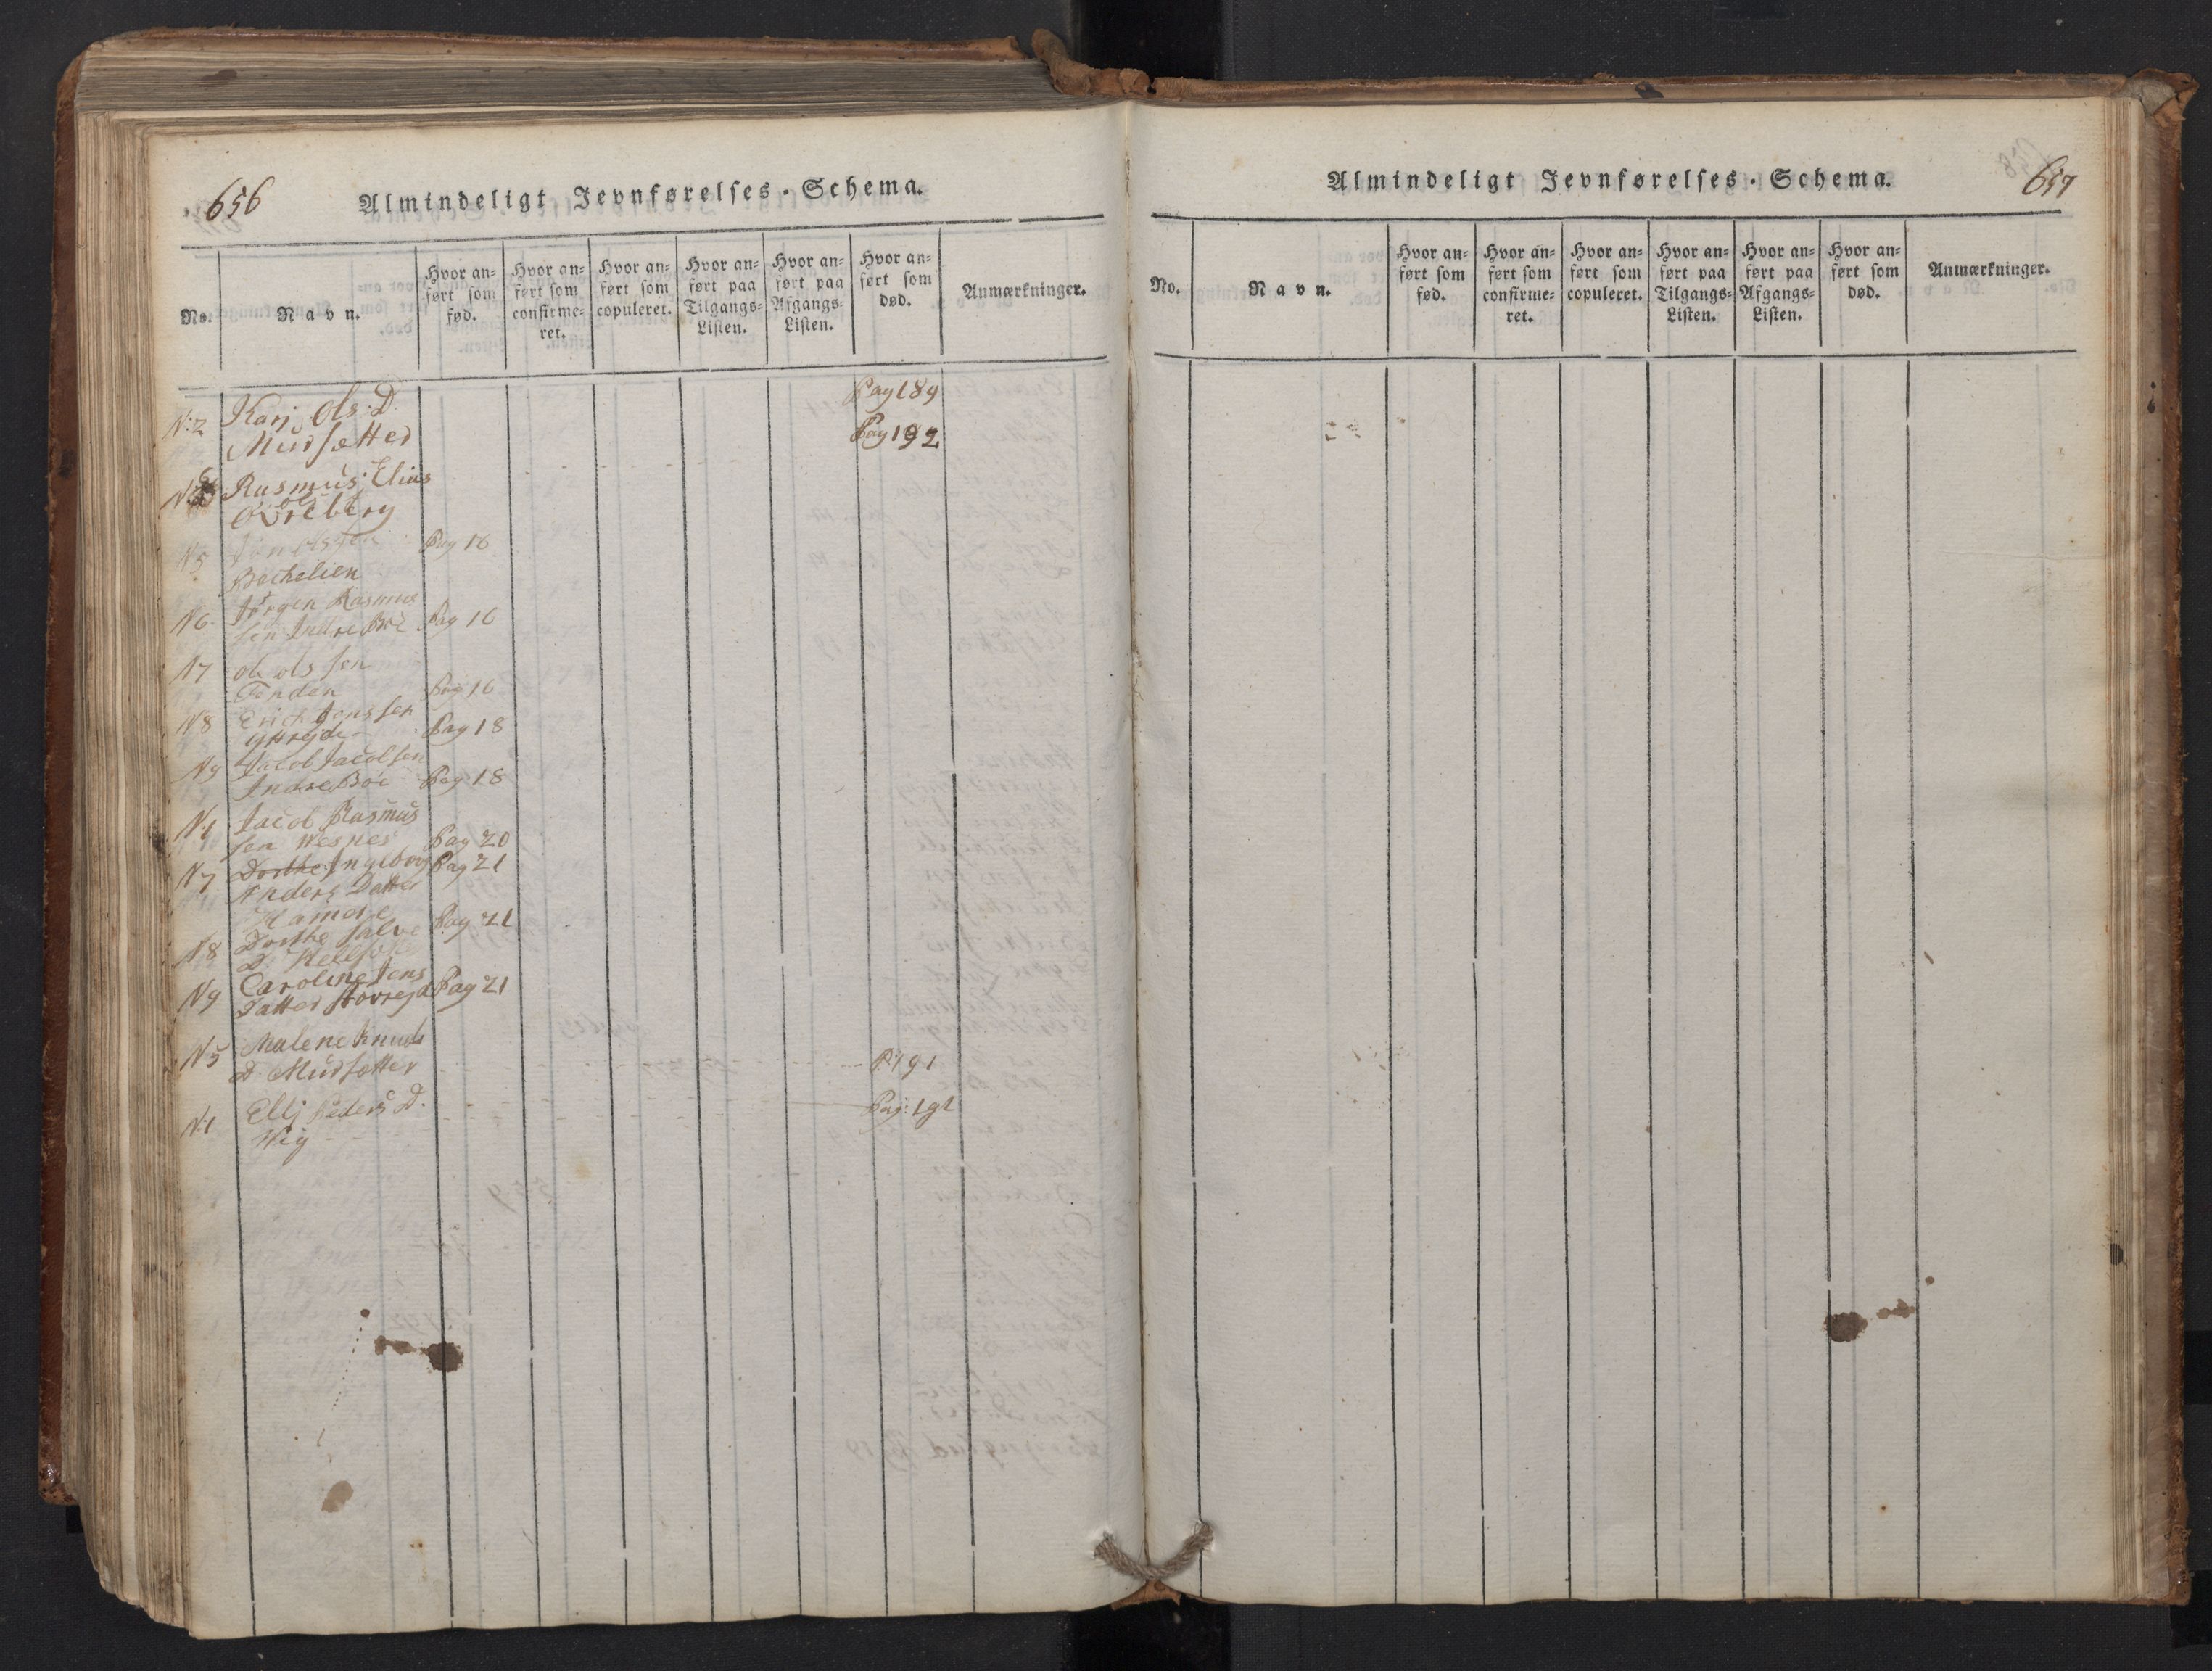 656
Almindeligt Jevnførelses-Schema.
No.
Navn.
Hvor anført som fød.
Hvor anført som confirmeret.
Hvor anført som copuleret.
Hvor anført paa Tilgangs-Listen.
Hvor anført paa Afgangs-Listen.
Hvor anført som død.
Anmærkninger.
N:2 Karj Ols: D. Pag 189
Mursætter Pag 192
Rasmus Elias
Ols
Øvreberg
N5 Pag 16
Bachelien
N6 Jørgen Rasmus
sen Indre Böe Pag 16
N7 ole ols sen
Tenden Pag 16
N8 Erich Jonssen
Pag 18
N9 Jacob Jacobsen
Indre Böe Pag 18
N1 Jacob Rasmus
sen Wesnes Pag 20
N7 Dorthe Ingeborg Pag 21
Anders Datter
Hamore
N8 Dorthe Salve Pag 21
D.
N9 Caroline Jens
Datter Pag 21
N5 Malene Knuds
D. Mursætter P. 191
N:1 Ellj Peders D. Pag: 191
Wig
657
Almindeligt Jevnførelses-Schema.
No.
Navn.
Hvor anført som fød.
Hvor anført som confirmeret.
Hvor anført som copuleret.
Hvor anført paa Tilgangs-Listen.
Hvor anført paa Afgangs-Listen.
Hvor anført som død.
Anmærkninger.